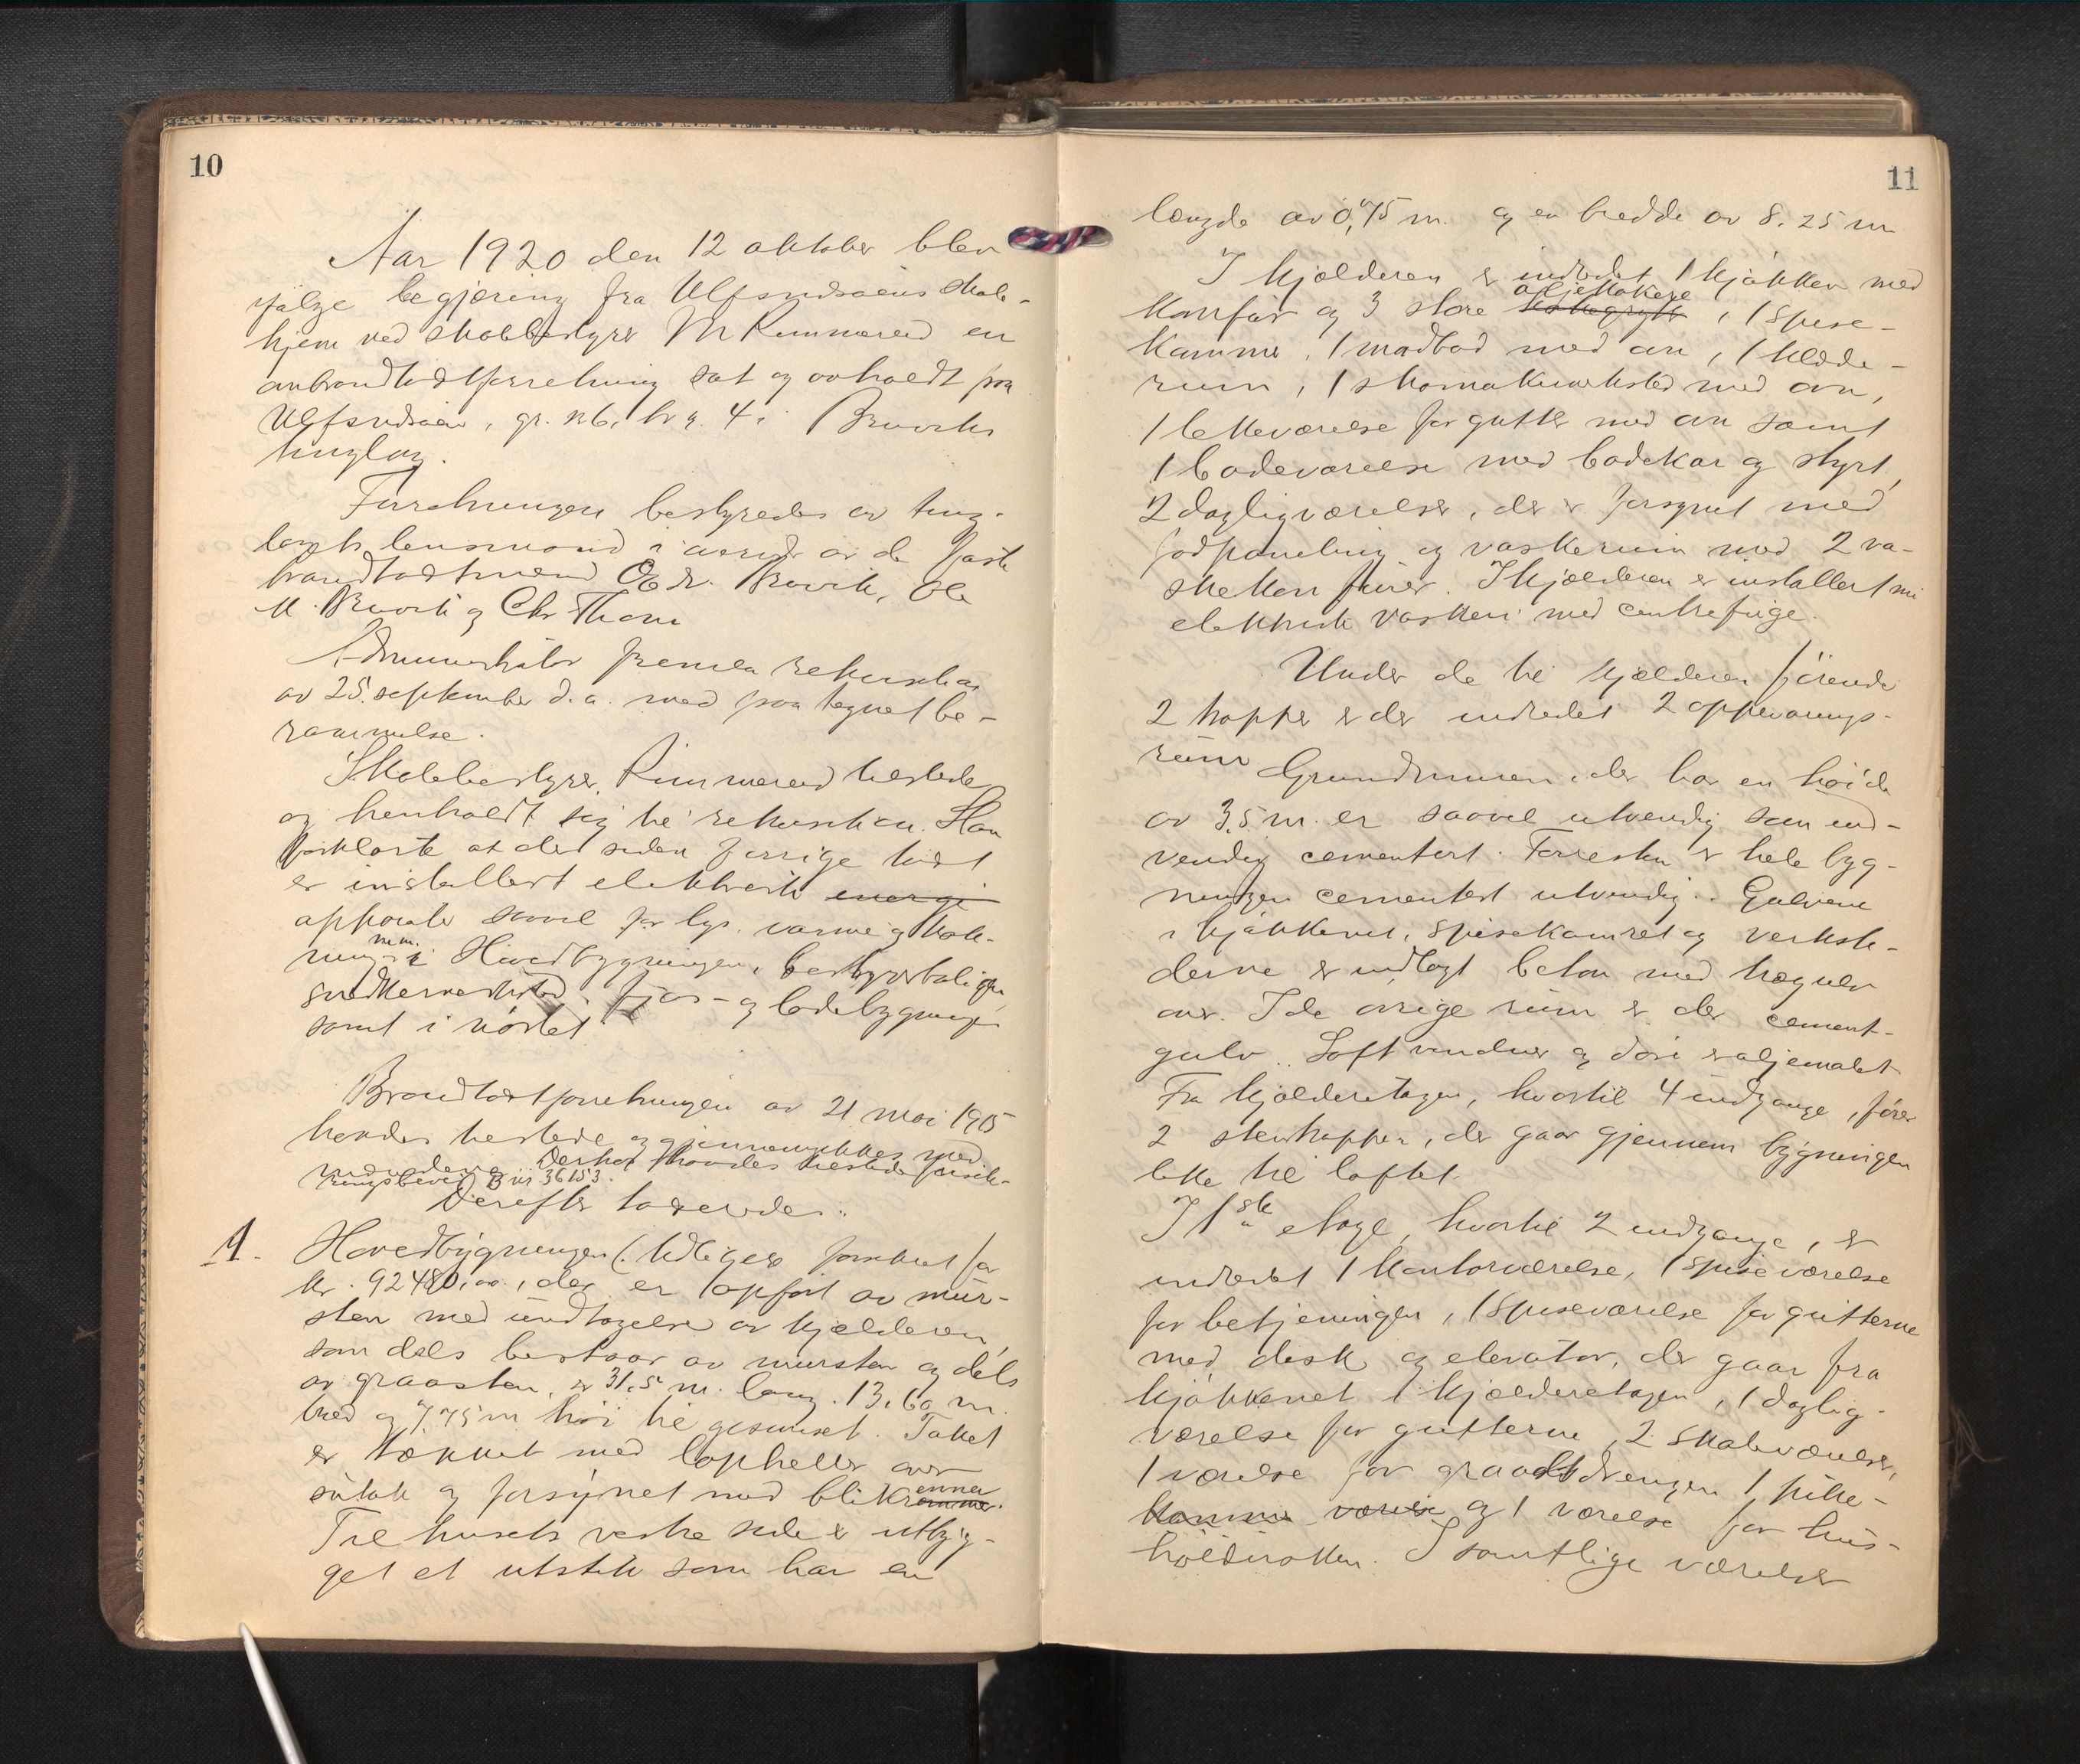 10
Aar 1920 den 12 oktober blev
ifølge begjæring fra Ulfsnesøens skole-
hjem ved skolebestyrer M Rimmereid en
ombrandtakstforretning sat og avholdt paa
Ulfsnesøen, gr. nr. 6, br. nr. 4 i Bruviks
tinglag.
Forretningen bestyredes av ting-
lagets lensmand i overvær av de faste
brandtakstmænd O. Bruvik, Ole
M. Bruvik og Chr Thom
Administrator fremla rekvisition
av 25. september d.a. med paategnet be-
rammelse.
Skolebestyrer Rimmereid tilstede
og henholdt sig til rekvisitionen. Han
forklarte at det siden forrige takst
er installert elektrisk energi
apparater saavel for lys, varme og kok-
ning m.m. i Hovedbygningen, bestyrerboligen
snedkerverksted, fjøs- og ladebygningen
samt i nøstet
Brandtakstforretningen av 21 mai 1915
havdes tilstede og gjennemgikkes med
mændene. Derhos havdes tilstede forsik-
ringsbevis B nr 36153.
Derefter taxeredes:
1. Hovedbygningen (tidligere forsikret for
kr. 92480,00, der er opført av mur-
sten med undtagelse av kjælderen,
som dels bestaar av mursten og dels
av graasten, er 31,5 m. lang. 13,60 m.
bred og 7,75 m høi til gesimset. Taket
er tækket med lapheller over
sutak og forsynet med blikrenner.
Til husets vestre side er utbyg-
get et utstik som har en
11
længde av 0,75 m. og en bredde av 8.25 m
I kjælderen er indredet 1 kjøkken med
komfür og 3 store oljekokere kokegryter, 1 spise-
kammer, 1 madbod med ovn, 1 klæde-
rum, 1 skomakerverksted med ovn,
1 lekeværelse for gutter med ovn samt
1 badeværelse med badekar og styrt,
2 dagligværelser, der er forsynet med
fodpaneling og vaskerum med 2 va-
skekomfürer. I kjælderen er installert nu
elektrisk vaskeri med centrefuge.
Under de til kjælderen førende
2 trapper er der indredet 2 oppevarings-
rum
Grundmuren, der har en høide
av 3,5 m. er saavel utvendig som ind-
vendig cementert. Forresten er hele byg-
ningen cementert utvendig. Gulvene
i kjøkkenet, spisekamret og verkste-
derne er indlagt beton med trægulv
over. I de øvrige rum er der cement-
gulv. Loft vinduer og døre er oljemalet
Fra kjælderetagen, hvortil 4 indgange, fører
2 stentrapper, der gaar gjennem bygningen
like til loftet.
I 1ste etage, hvortil 2 indgange, er
indredet 1 kontorværelse, 1 spiseværelse
for betjeningen, 1 spiseværelse for gutterne
med disk og elevator, der gaar fra
kjøkkenet i kjælderetagen, 1 daglig-
værelse for gutterne, 2 skoleværelser,
1 værelse for gaardsdrengen 1 pike-
kammer værelse og 1 værelse for hus-
holdersken. I samtlige værelser